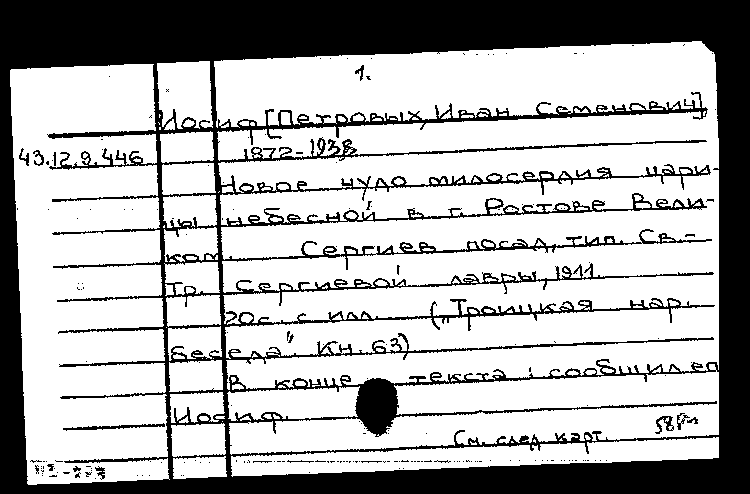 1.
Иосиф [Петровых, Иван Семенович]
43.12.9.446 1872-1938
Новое чудо милосердия цари-
цы небесной в г. Ростове Вели-
ком. Сергиев посад, тип. Св.-
Тр. Сергиевой лавры, 1911.
20с. с илл. („Троицкая нар.
беседа". Кн. 63)
В конце текста: сообщил еп
Иосиф.
См. след карт.